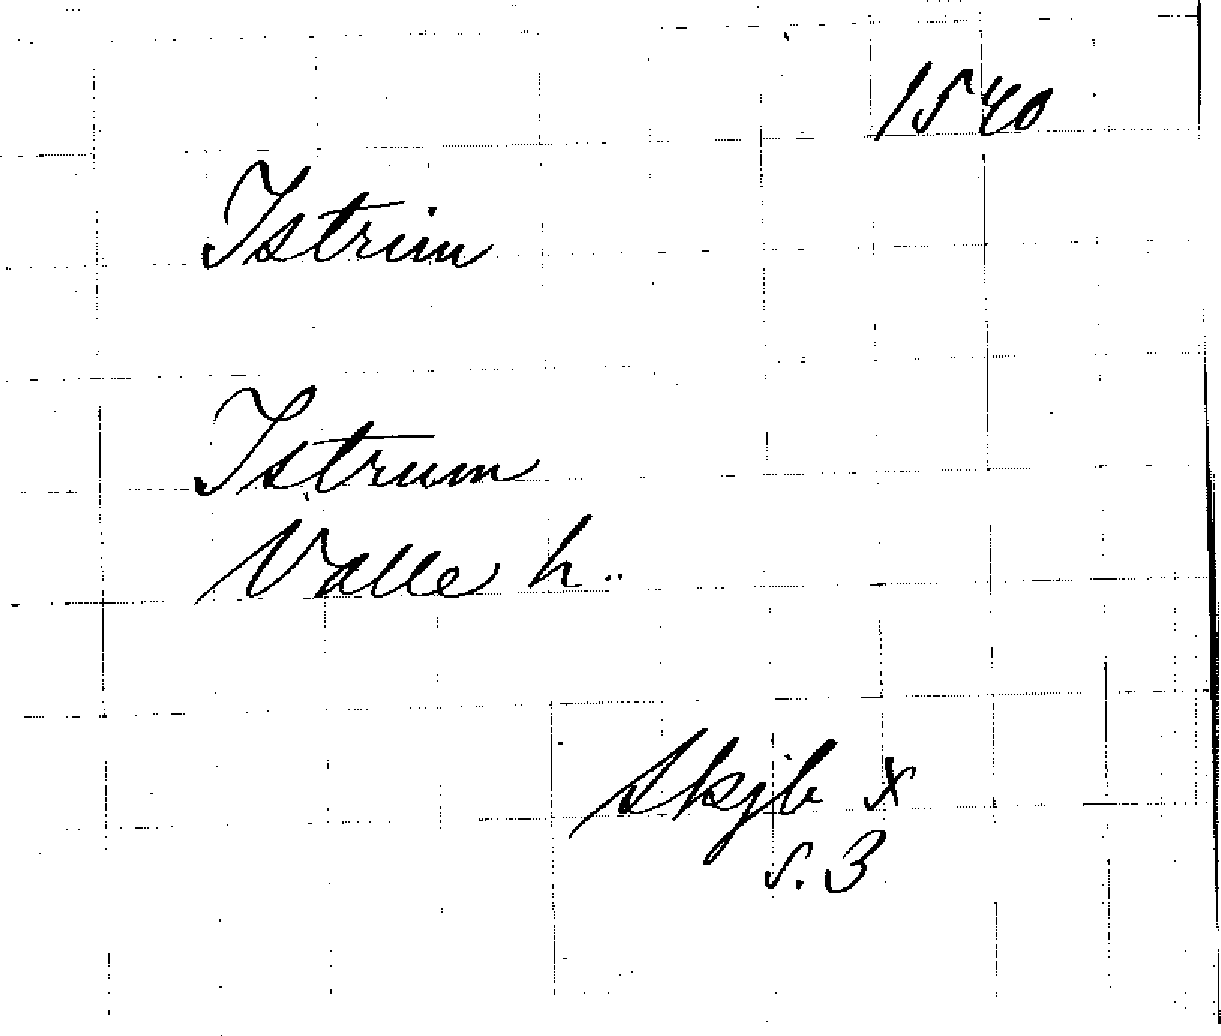 1540
Istrim
Istrum
Valle h..
Skjb x
s. 3